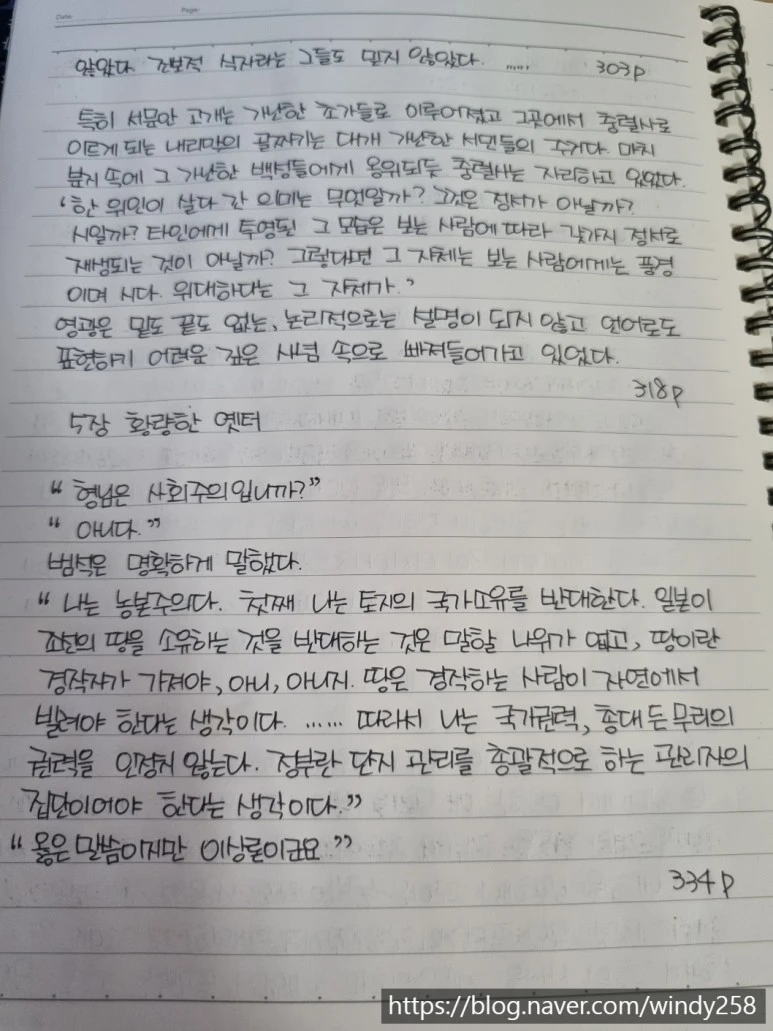 Date: Page:
않았다. 진보적 식자라는 그들도 믿지 않았다. ...... 303p
특히 서문안 고개는 가난한 초가들로 이루어졌고 그곳에서 충렬사로
이르게 되는 내리막의 골짜기는 대개 가난한 서민들의 주거다. 마치
분지 속에 그 가난한 백성들에게 옹위되듯 충렬사는 자리하고 있었다.
'한 위인이 살다 간 의미는 무엇일까? 그것은 정서가 아닐까?
시일까? 타인에게 투영된 그 모습은 보는 사람에 따라 갖가지 정서로
재생되는 것이 아닐까? 그렇다면 그 자체는 보는 사람에게는 풍경
이며 시다. 위대하다는 그 자체가.'
영광은 밑도 끝도 없는, 논리적으로는 설명이 되지 않고 언어로도
표현하기 어려운 깊은 새념 속으로 빠져들어가고 있었다.
318p
5장 황량한 옛터
“형님은 사회주의입니까?”
“아니다.”
범석은 명확하게 말했다.
“나는 농본주의다. 첫째 나는 토지의 국가소유를 반대한다. 일본이
조선의 땅을 소유하는 것을 반대하는 것은 말할 나위가 없고, 땅이란
경작자가 가져야, 아니, 아니지. 땅은 경작하는 사람이 자연에서
빌려야 한다는 생각이다. ...... 따라서 나는 국가권력, 총대 든 무리의
권력을 인정치 않는다. 정부란 단지 관리를 총괄적으로 하는 관리자의
집단이어야 한다는 생각이다.”
“옳은 말씀이지만 이상론이군요.”
334p
https://blog.naver.com/windy258